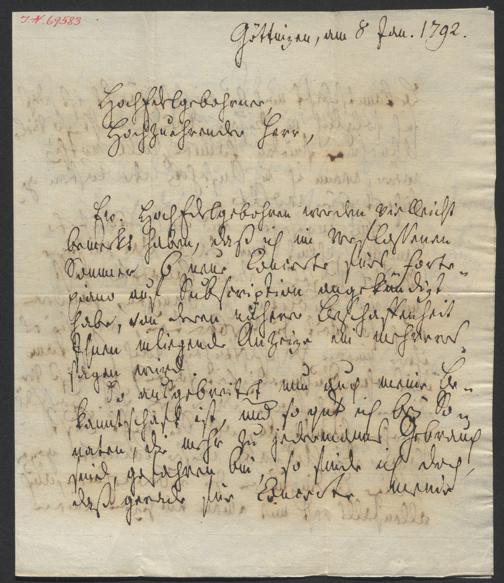 I.N. 69583
Göttingen, am 8 Jan. 1792.
Hochedelgebohrner,
Hochzuehrender Herr,
Ew. Hochedelgebohren werden vielleicht
bemerkt haben, daß ich im verflossenen
Sommer 6 neue Concerte fürs Forte-
piano auf Subscription angekündigt
habe, von deren näherer Beschaffenheit
Ihnen inliegend Anzeige ein mehreres
sagen wird.
So ausgebreitet nun auch meine Be-
kanntschaft ist, und so gut ich bey So-
naten, die mehr zu jedermanns Gebrauch
sind, gefahren bin, so finde ich doch,
daß gerade für Concerte meine